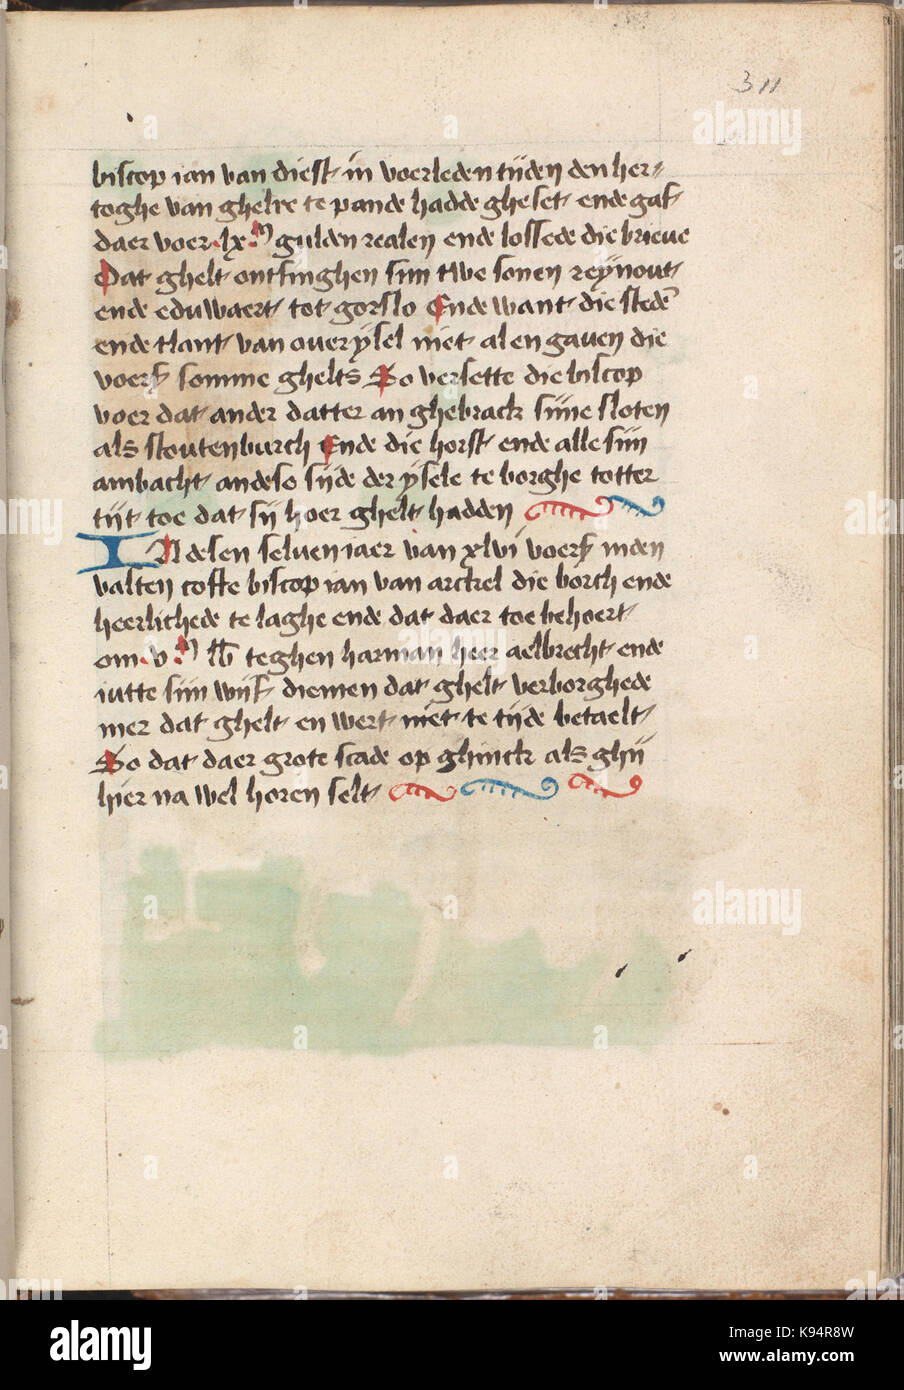 311
biscop ian van diest in voerleden tijden den her-
toghe van ghelre te pande hadde gheset ende gaf
daer voer lxᵐ gulden realen ende lossede die brieue
Dat ghelt ontfinghen sijn twe sonen reynout
ende eduwaert tot gorslo Ende want die stedē
ende tlant van ouerysel niet al en gauen die
voers somme ghelts So versette die biscop
voer dat ander datter an ghebrack sijne sloten
als stoutenburch Ende die horst ende alle sijn
ambacht andeso sijde der ysele te borghe totter
tijt toe dat sij hoer ghelt hadden
IN desen seluen iaer van xlvi voers inden
vasten cofte biscop ian van arckel die borch ende
heerlichede te laghe ende dat daer toe behoert
om vᵐ lb teghen harman heer aelbrecht ende
iutte sijn wijf diemen dat ghelt verborghede
mer dat ghelt en wert niet te tijde betaelt
So dat daer grote scade op ghinck als ghij
hier na wel horen selt
alamy
Image ID: K94R8W
www.alamy.com